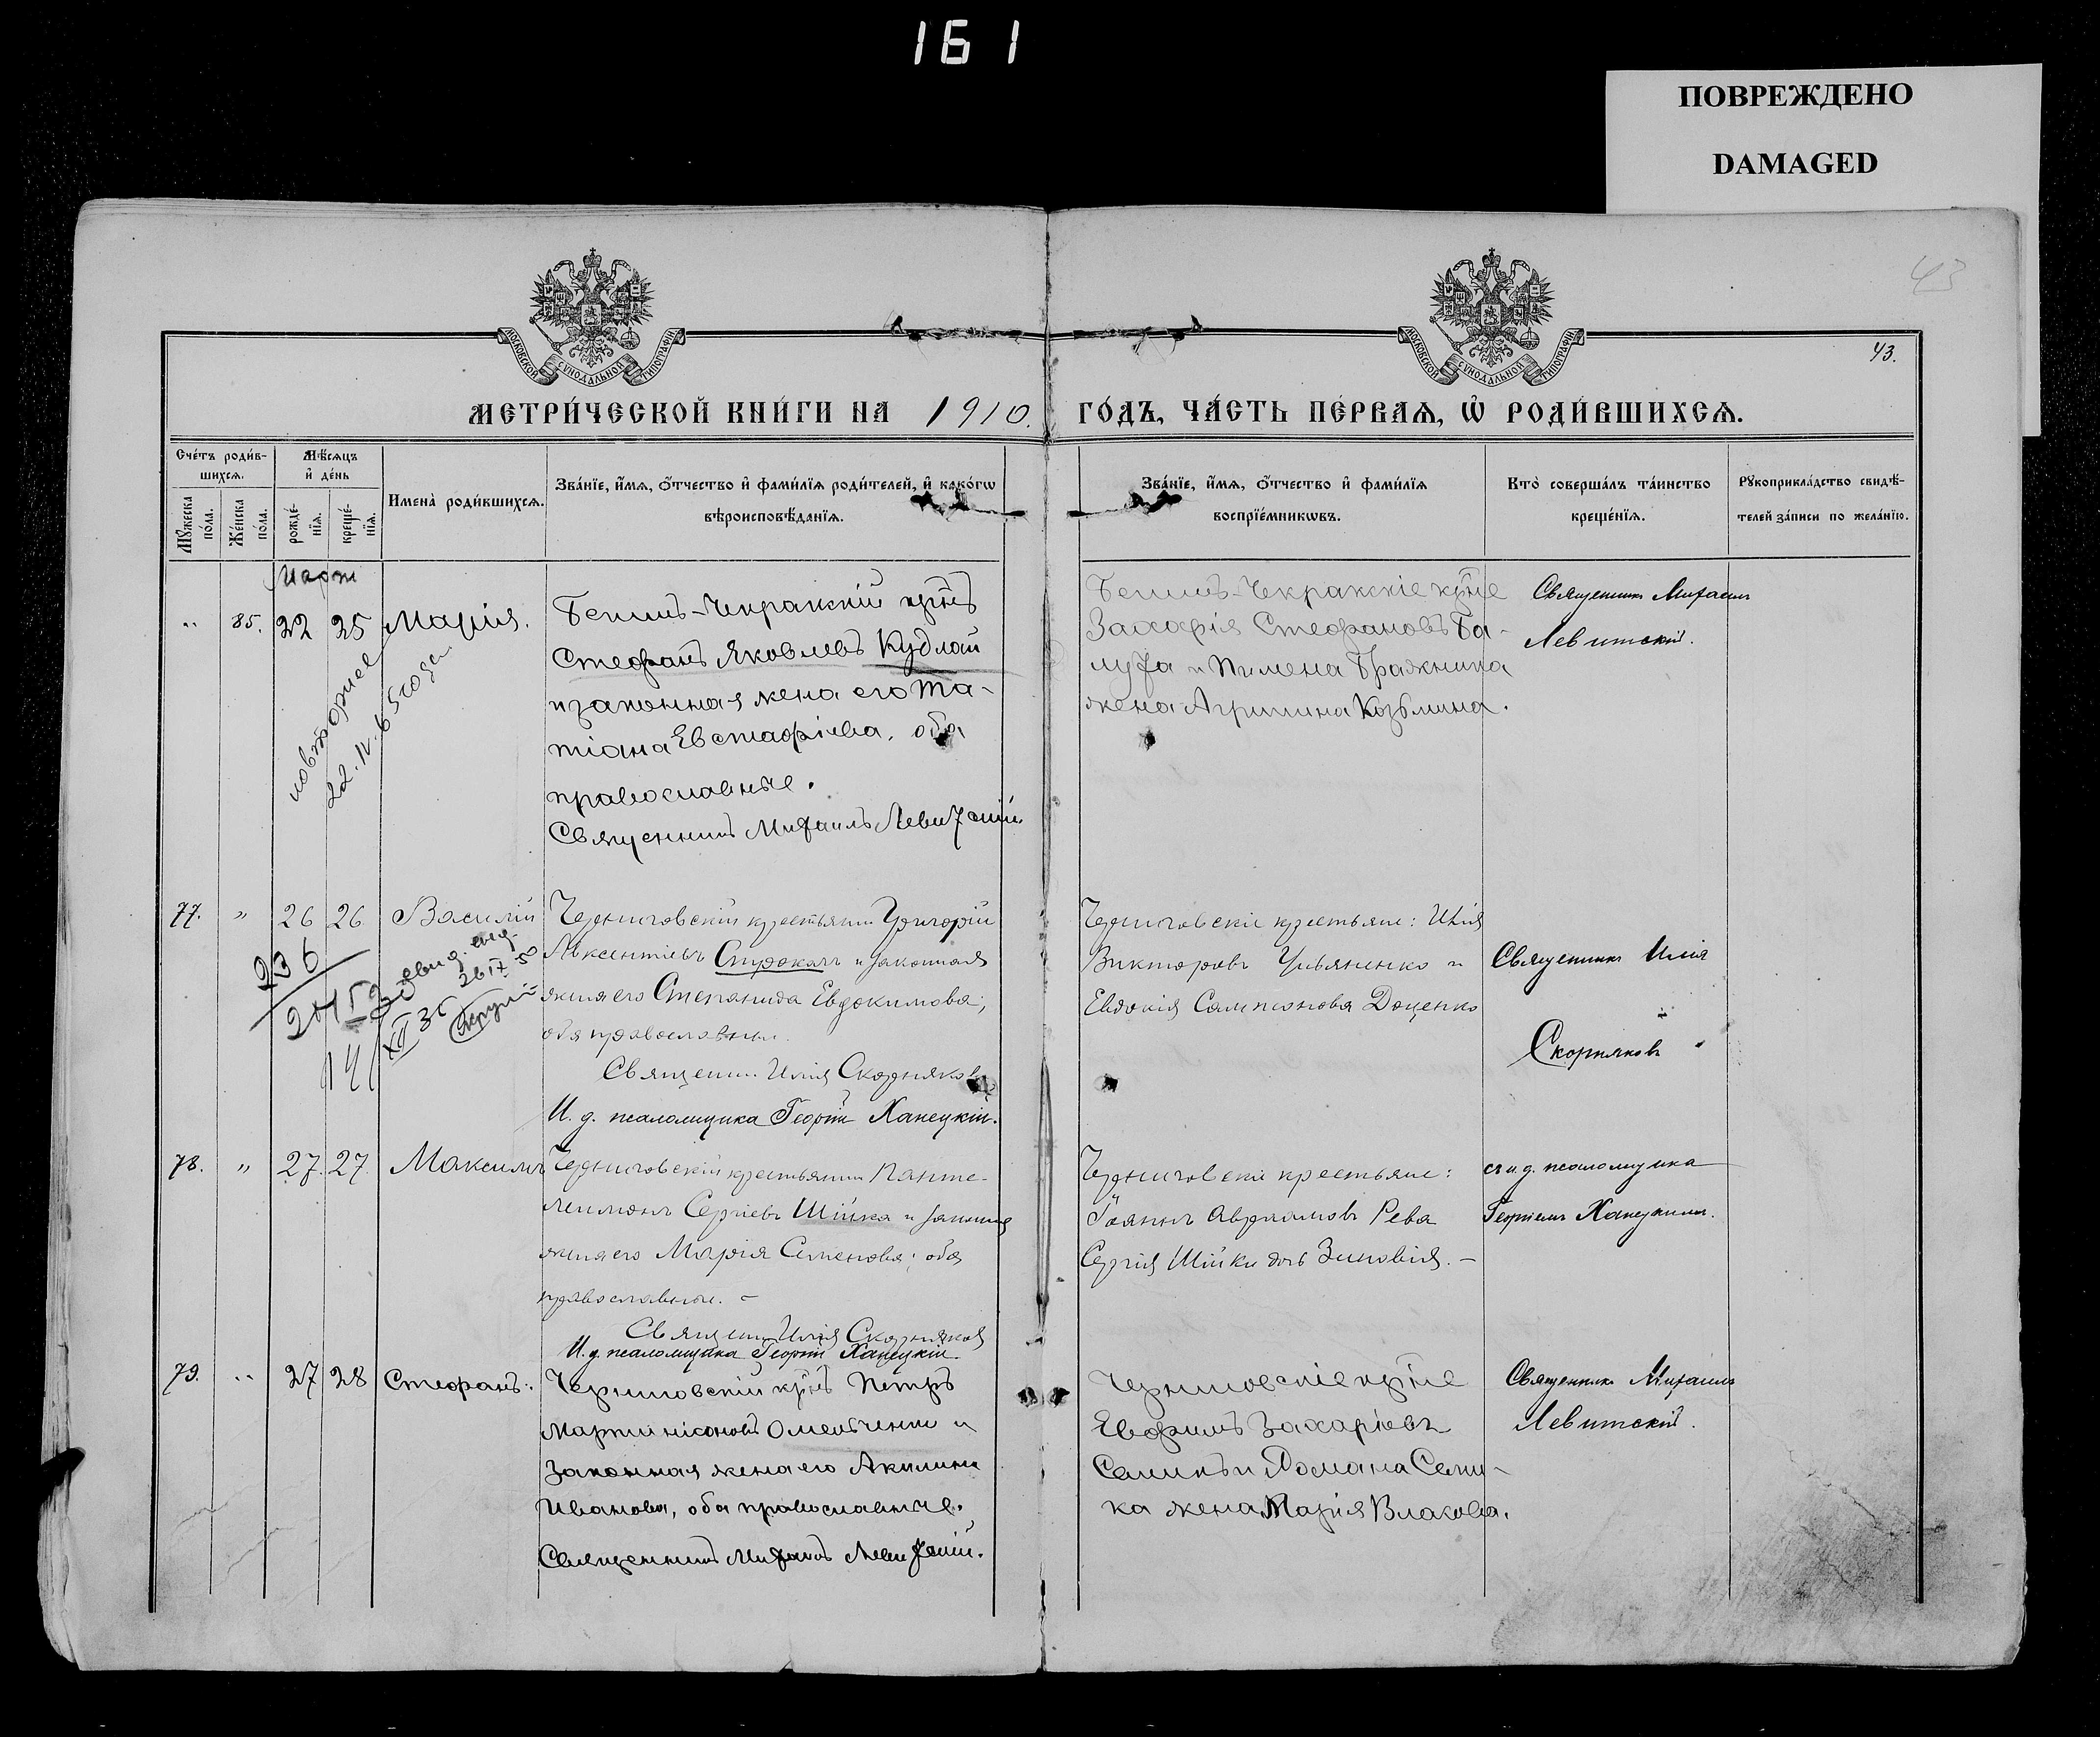 161
ПОВРЕЖДЕНО
DAMAGED
43
43.
МОСКОВСКОЙ СѴНОДАЛЬНОЙ ТИПОГРАФІИ
МОСКОВСКОЙ СѴНОДАЛЬНОЙ ТИПОГРАФІИ
МЕТРИ́ЧЕСКОЙ КНИ́ГИ НА 1910. ГО́ДЪ, ЧА́СТЬ ПЕ́РВАѦ, Ѡ҆ РОДИ́ВШИХСѦ.
Сче́тъ роди́в-
шихсѧ.
Мꙋ́жеска по́ла.
Же́нска по́ла.
Мѣ́сѧцъ
и҆ де́нь
рожде́-
нїѧ.
креще́-
нїѧ.
Имена̀ роди́вшихсѧ.
Зва́нїе, и҆́мѧ, ѻ҆́тчество и҆ фами́лїѧ роди́телей, и҆ како́гѡ
вѣроисповѣ́данїѧ.
Зва́нїе, и҆́мѧ, ѻ҆́тчество и҆ фами́лїѧ
воспрїе́мникѡвъ.
Кто̀ соверша́лъ та́инство
креще́нїѧ.
Рꙋкоприкла́дство свидѣ́-
телей за́писи по жела́нїю.
Мартъ
" 85. 22 25 Марія.
повторное
22.IV.65 года
Бешъ-Чекракскій кр-нъ
Стефанъ Яковлевъ Кудлай
и законная жена его Та-
тіана Евстафіева, оба
православные.
Священникъ Михаилъ Левитскій
Бешъ-Чекракскіе кр-не
Захарія Стефановъ Ба-
луха и Пимена Бражника
жена Агрипина Козьмина.
Священникъ Михаилъ
Левитскій.
77. " 26 26 Василій
236
Черниговскій крестьянин Григорій
Авксентіевъ Строкачъ и законная
жена его Степанида Евдокимова;
оба православны.
Священник Илія Скорняковъ
И. д. псаломщика Георгій Ханецкій.
Черниговскіе крестьяне: Илія
Викторовъ Ульяненко и
Евдокія Сампсонова Доценко
Священникъ Илія
Скорняковъ
78. " 27. 27. Максимъ
Черниговскій крестьянин Панте-
леимонъ Сергіевъ Шійка и законная
жена его Марія Семенова; оба
православны. –
Священник Илія Скорняков
И. д. псаломщика Георгій Ханецкій.
Черниговскіе крестьяне:
Іоаннъ Авраамовъ Рева
Сергія Шійки дочь Зиновія. –
съ и. д. псаломщика
Георгіемъ Ханецкимъ.
79. " 27 28 Стефанъ.
Черниговскій кр-нъ Петръ
Мартиніановъ Омельченко и
законная жена его Акилина
Иванова, оба православные.
Священникъ Михаилъ Левитскій.
Черниговскіе кр-не
Евфимъ Захаріевъ
Семикъ и Романа Семи-
ка жена Марія Власова.
Священникъ Михаилъ
Левитскій.